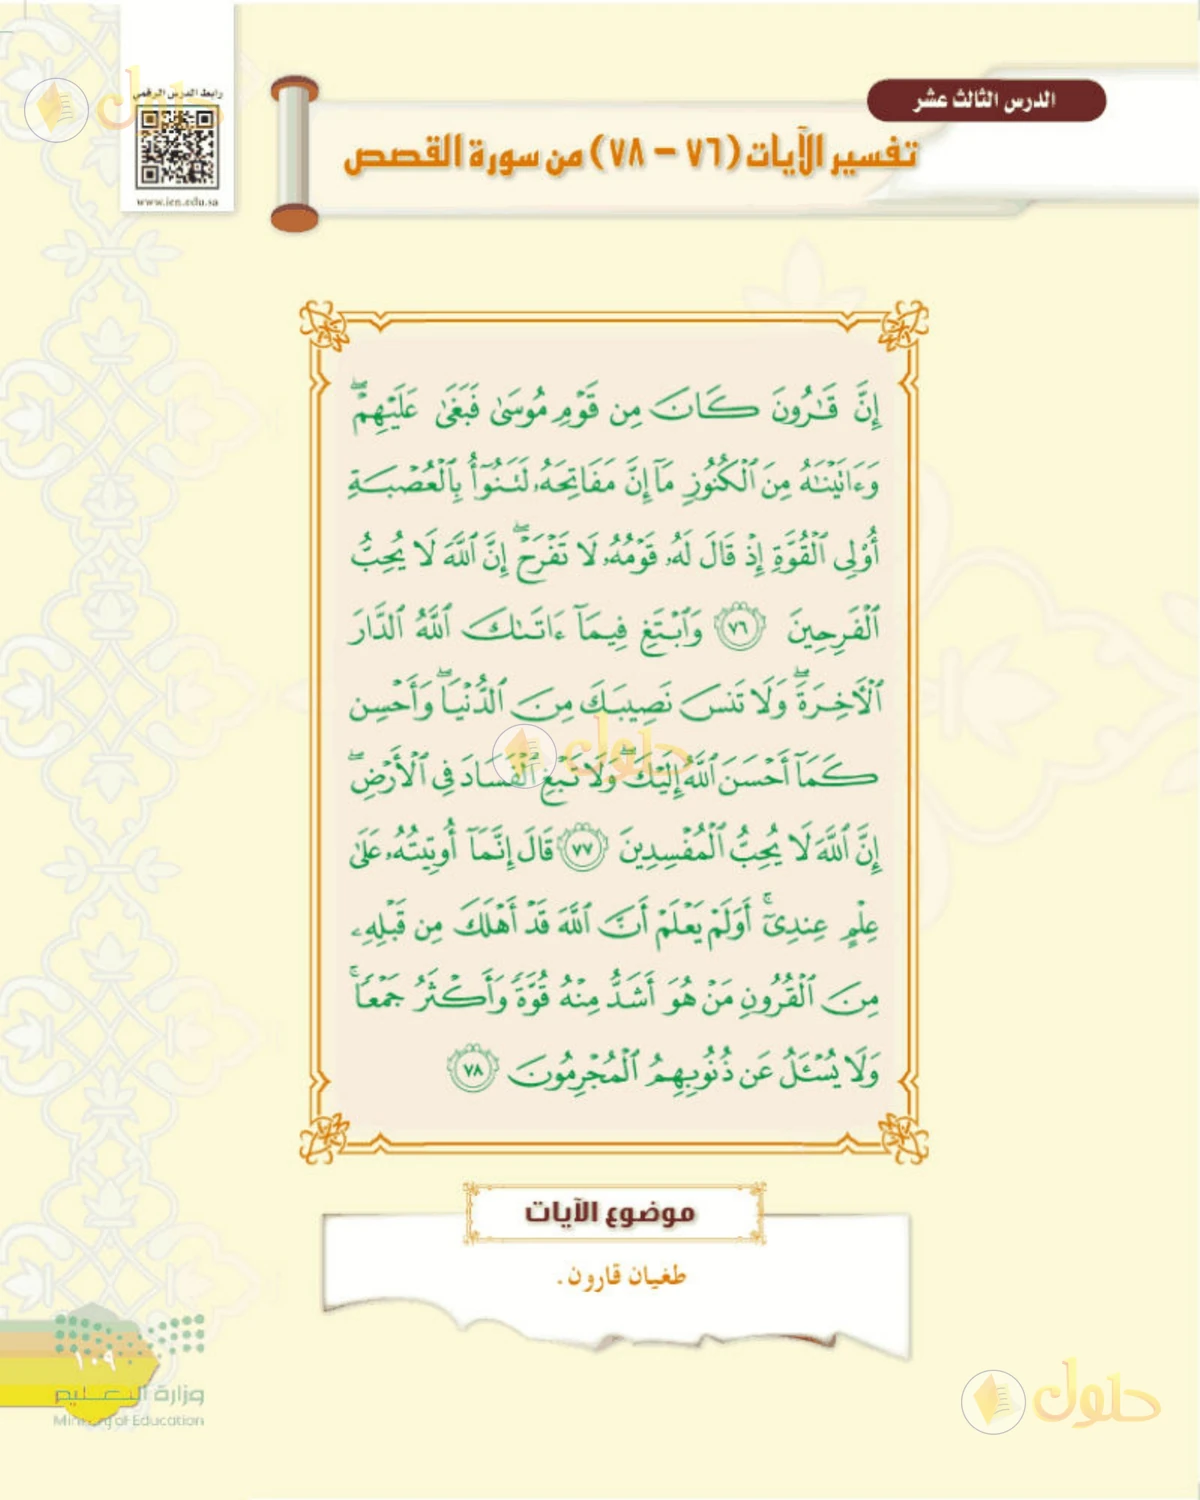 حلول
رابط الدرس الرقمي
www.ien.edu.sa
الدرس الثالث عشر
تفسير الآيات (٧٦ – ٧٨) من سورة القصص
إِنَّ قَٰرُونَ كَانَ مِن قَوْمِ مُوسَىٰ فَبَغَىٰ عَلَيْهِمْ ۖ
وَءَاتَيْنَٰهُ مِنَ ٱلْكُنُوزِ مَآ إِنَّ مَفَاتِحَهُۥ لَتَنُوٓأُ بِٱلْعُصْبَةِ
أُو۟لِى ٱلْقُوَّةِ إِذْ قَالَ لَهُۥ قَوْمُهُۥ لَا تَفْرَحْ ۖ إِنَّ ٱللَّهَ لَا يُحِبُّ
ٱلْفَرِحِينَ ٧٦ وَٱبْتَغِ فِيمَآ ءَاتَىٰكَ ٱللَّهُ ٱلدَّارَ
ٱلْءَاخِرَةَ ۖ وَلَا تَنسَ نَصِيبَكَ مِنَ ٱلدُّنْيَا ۖ وَأَحْسِن
كَمَآ أَحْسَنَ ٱللَّهُ إِلَيْكَ ۖ وَلَا تَبْغِ ٱلْفَسَادَ فِى ٱلْأَرْضِ ۖ
إِنَّ ٱللَّهَ لَا يُحِبُّ ٱلْمُفْسِدِينَ ٧٧ قَالَ إِنَّمَآ أُوتِيتُهُۥ عَلَىٰ
عِلْمٍ عِندِىٓ ۚ أَوَلَمْ يَعْلَمْ أَنَّ ٱللَّهَ قَدْ أَهْلَكَ مِن قَبْلِهِۦ
مِنَ ٱلْقُرُونِ مَنْ هُوَ أَشَدُّ مِنْهُ قُوَّةً وَأَكْثَرُ جَمْعًا ۚ
وَلَا يُسْـَٔلُ عَن ذُنُوبِهِمُ ٱلْمُجْرِمُونَ ٧٨
حلول
موضوع الآيات
طغيان قارون .
١٠٩
وزارة التعليم
Ministry of Education
حلول